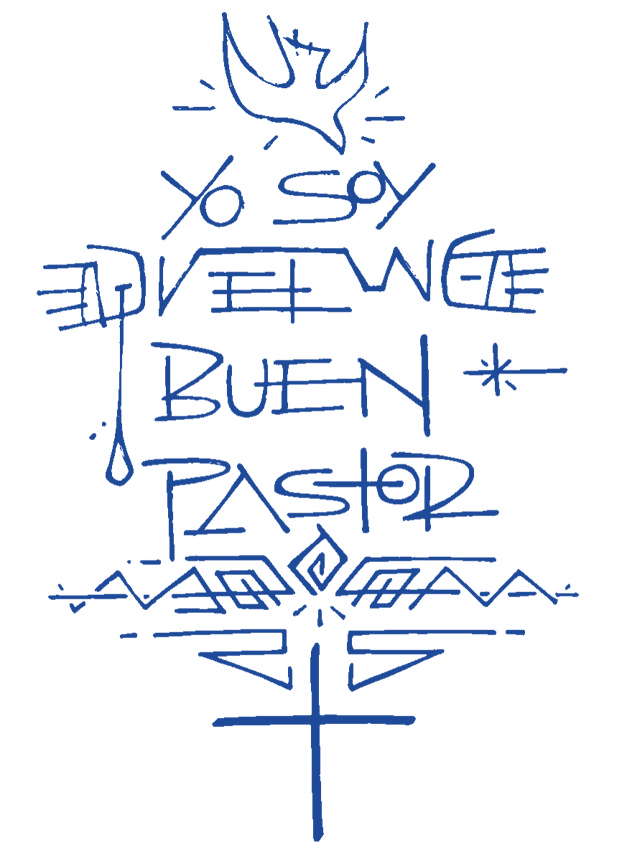 YO SOY
EL
BUEN
PASTOR